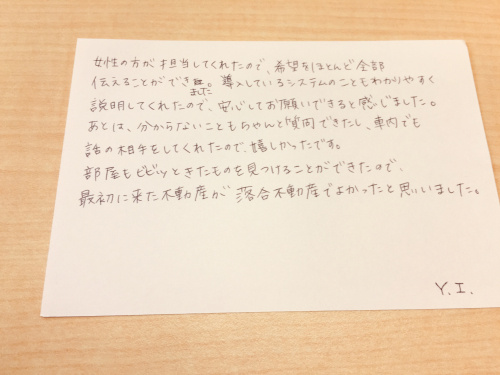 女性の方が担当してくれたので、希望をほとんど全部
伝えることができました。導入しているシステムのこともわかりやすく
説明してくれたので、安心してお願いできると感じました。
あとは、分からないこともちゃんと質問できたし、車内でも
話の相手をしてくれたので、嬉しかったです。
部屋もビビッときたものを見つけることができたので、
最初に来た不動産が落合不動産でよかったと思いました。
Y.I.